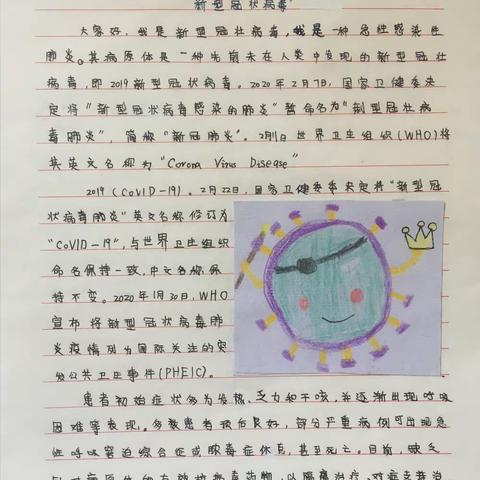 新型冠状病毒
大家好，我是新型冠状病毒，我是一种急性感染性
肺炎。其病原体是一种先前未在人类中发现的新型冠状
病毒，即2019新型冠状病毒。2020年2月7日，国家卫健委决
定将"新型冠状病毒感染的肺炎"暂命名为"新型冠状病
毒肺炎"，简称"新冠肺炎"。2月11日世界卫生组织(WHO)将
其英文名称为"Corona Virus Disease"
2019 (COVID-19)。2月22日，国家卫健委决定将"新型冠
状病毒肺炎"英文名称修订为
"COVID-19"，与世界卫生组织
命名保持一致，中文名称保
持不变。2020年1月30日，WHO
宣布将新型冠状病毒肺
炎疫情列为国际关注的突
发公共卫生事件(PHEIC)。
患者初始症状多为发热、乏力和干咳，并逐渐出现呼吸
困难等表现。多数患者预后良好，部分严重病例可出现急
性呼吸窘迫综合症或脓毒症休克，甚至死亡。目前，缺乏
针对病原体的有效抗病毒药物，以隔离治疗、对症支持治